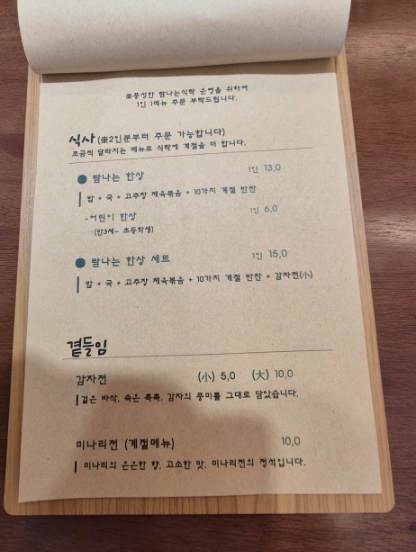 ※풍성한 탐나는식탁 운영을 위하여
1인 1메뉴 주문 부탁드립니다.
식사 (※2인분부터 주문 가능합니다)
조금씩 달라지는 메뉴로 식탁에 계절을 더 합니다.
● 탐나는 한상 1인 13,0
밥 + 국 + 고추장 제육볶음 + 10가지 계절 반찬
-어린이 한상 1인 6,0
(만3세~ 초등학생)
● 탐나는 한상 세트 1인 15,0
밥 + 국 + 고추장 제육볶음 + 10가지 계절 반찬 + 감자전(小)
곁들임
감자전 (小) 5,0 (大) 10,0
겉은 바삭, 속은 촉촉, 감자의 풍미를 그대로 담았습니다.
미나리전 (계절메뉴) 10,0
미나리의 은은한 향, 고소한 맛, 미나리전의 정석입니다.